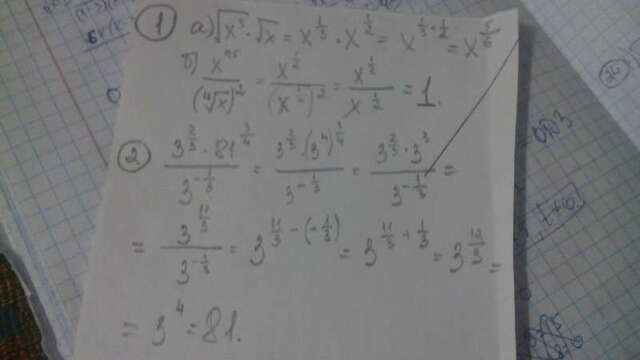 ① а) √x³ · √x = x^(1/3) · x^(1/2) = x^(1/3 + 1/2) = x^(5/6)
б) x^(0,5) / (⁴√x)² = x^(1/2) / (x^(1/4))² = x^(1/2) / x^(1/2) = 1.
② 3^(2/3) · 81^(3/4) / 3^(-1/3) = 3^(2/3) · (3⁴)^(3/4) / 3^(-1/3) = 3^(2/3) · 3³ / 3^(-1/3) =
= 3^(11/3) / 3^(-1/3) = 3^(11/3 - (-1/3)) = 3^(11/3 + 1/3) = 3^(12/3) =
= 3⁴ = 81.